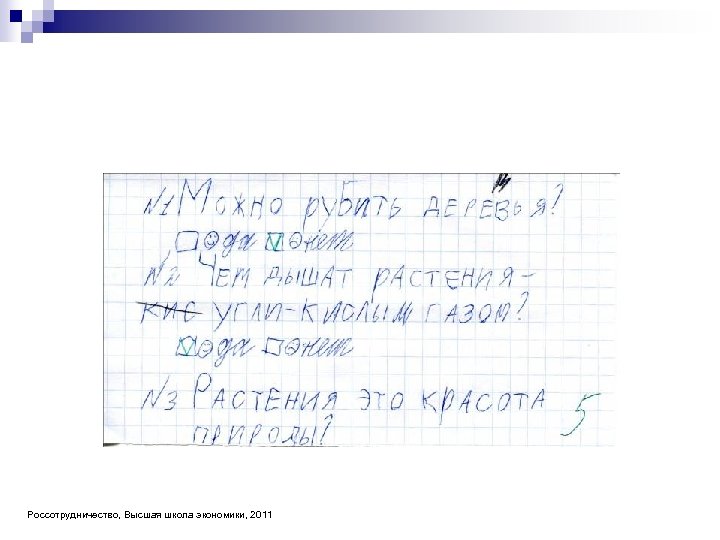 №1 Можно рубить деревья?
да нет
№2 Чем дышат растения-
кис угли-кислым газом?
да нет
№3 Растения это красота 5
природы?
Россотрудничество, Высшая школа экономики, 2011